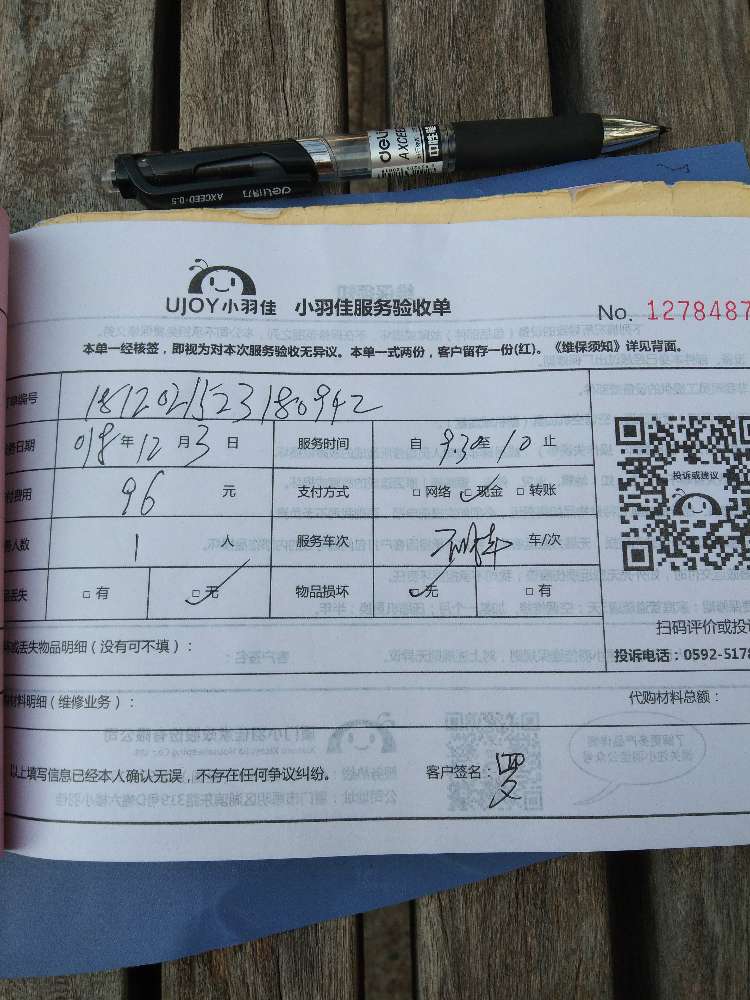 deli
AXCEED
中性笔
deli得力
AXCEED·0.5
UJOY小羽佳 小羽佳服务验收单
No. 1278487
本单一经核签，即视为对本次服务验收无异议。本单一式两份，客户留存一份(红)。《维保须知》详见背面。
单编号 1812021523180942
务日期 018年12月3日 服务时间 自9:30至10止
付费用 96 元 支付方式 □网络 ☑现金 □转账
务人数 1 人 服务车次 车/次
品丢失 □有 ☑无 物品损坏 ☑无 □有
投诉或建议
扫码评价或投诉
坏或丢失物品明细（没有可不填）：
投诉电话：0592-5178
材料明细（维修业务）： 代购材料总额：
以上填写信息已经本人确认无误，不存在任何争议纠纷。 客户签名：罗